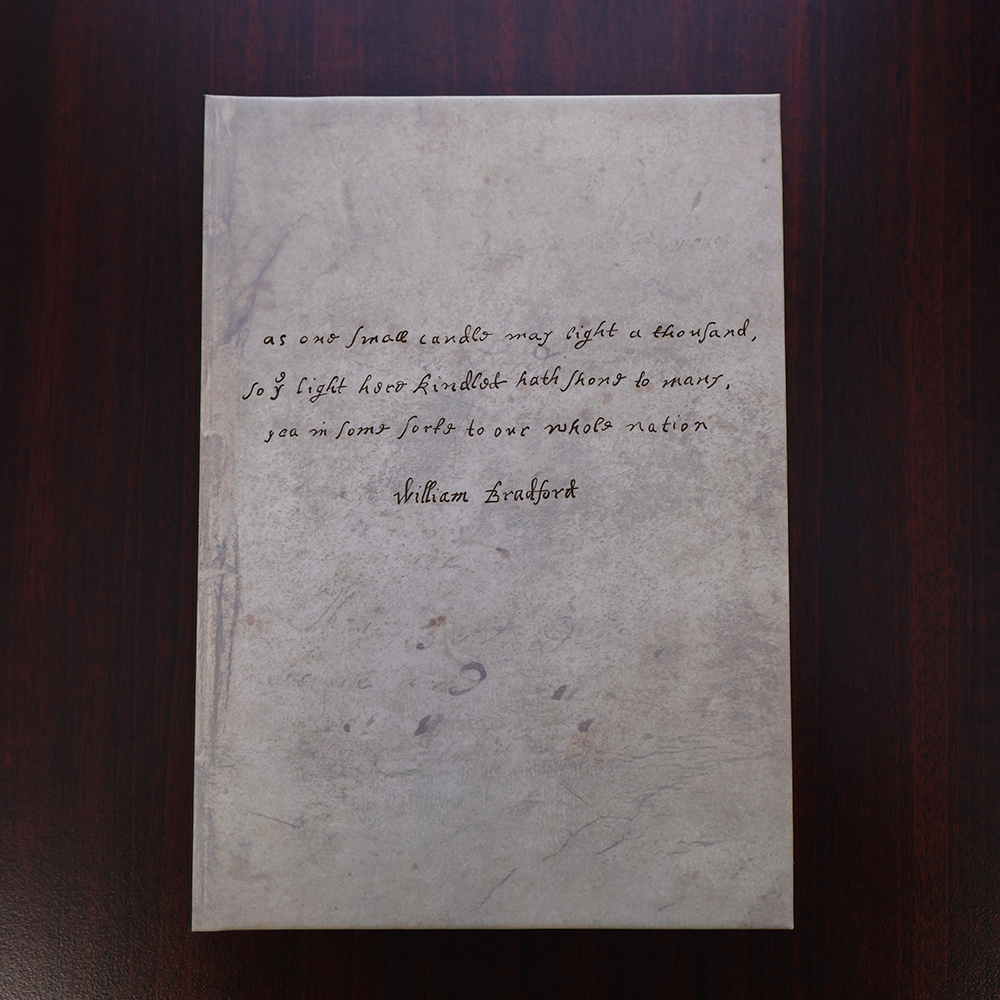 as one ſmall candle may light a thouſand,
ſo yͤ light here kindled hath ſhone to many,
yea in ſome ſorte to our whole nation
William Bradford